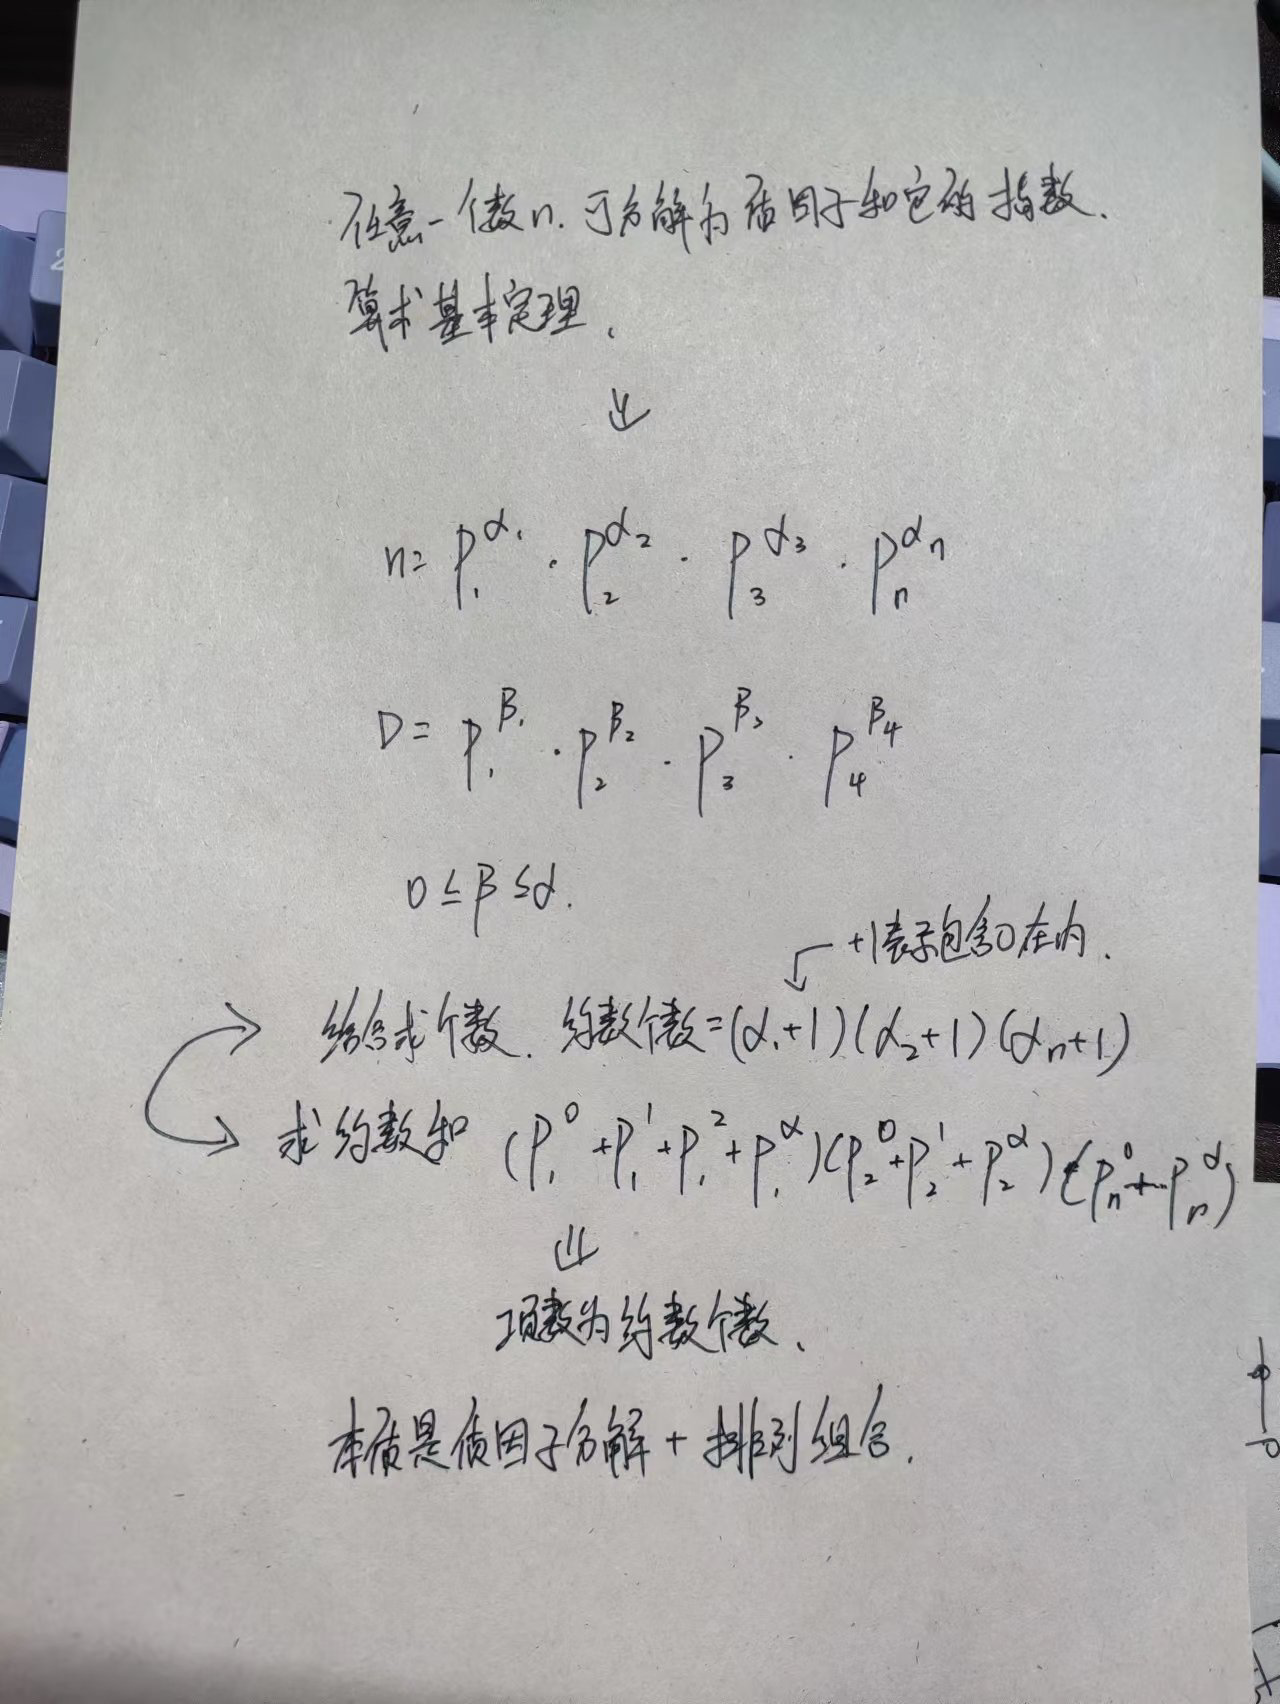 任意一个数n.可分解为质因子和它的指数.
算术基本定理.
⇓
n= P₁^α₁ · P₂^α₂ · P₃^α₃ · Pₙ^αₙ
D= P₁^β₁ · P₂^β₂ · P₃^β₃ · P₄^β₄
0≤β≤α.
+1表示包含0在内.
求个数. 约数个数=(α₁+1)(α₂+1)(αₙ+1)
求约数和 (P₁^0+P₁^1+P₁^2+P₁^α)(P₂^0+P₂^1+P₂^α)(Pₙ^0+…Pₙ^α)
⇓
项数为约数个数.
本质是质因子分解+排列组合.